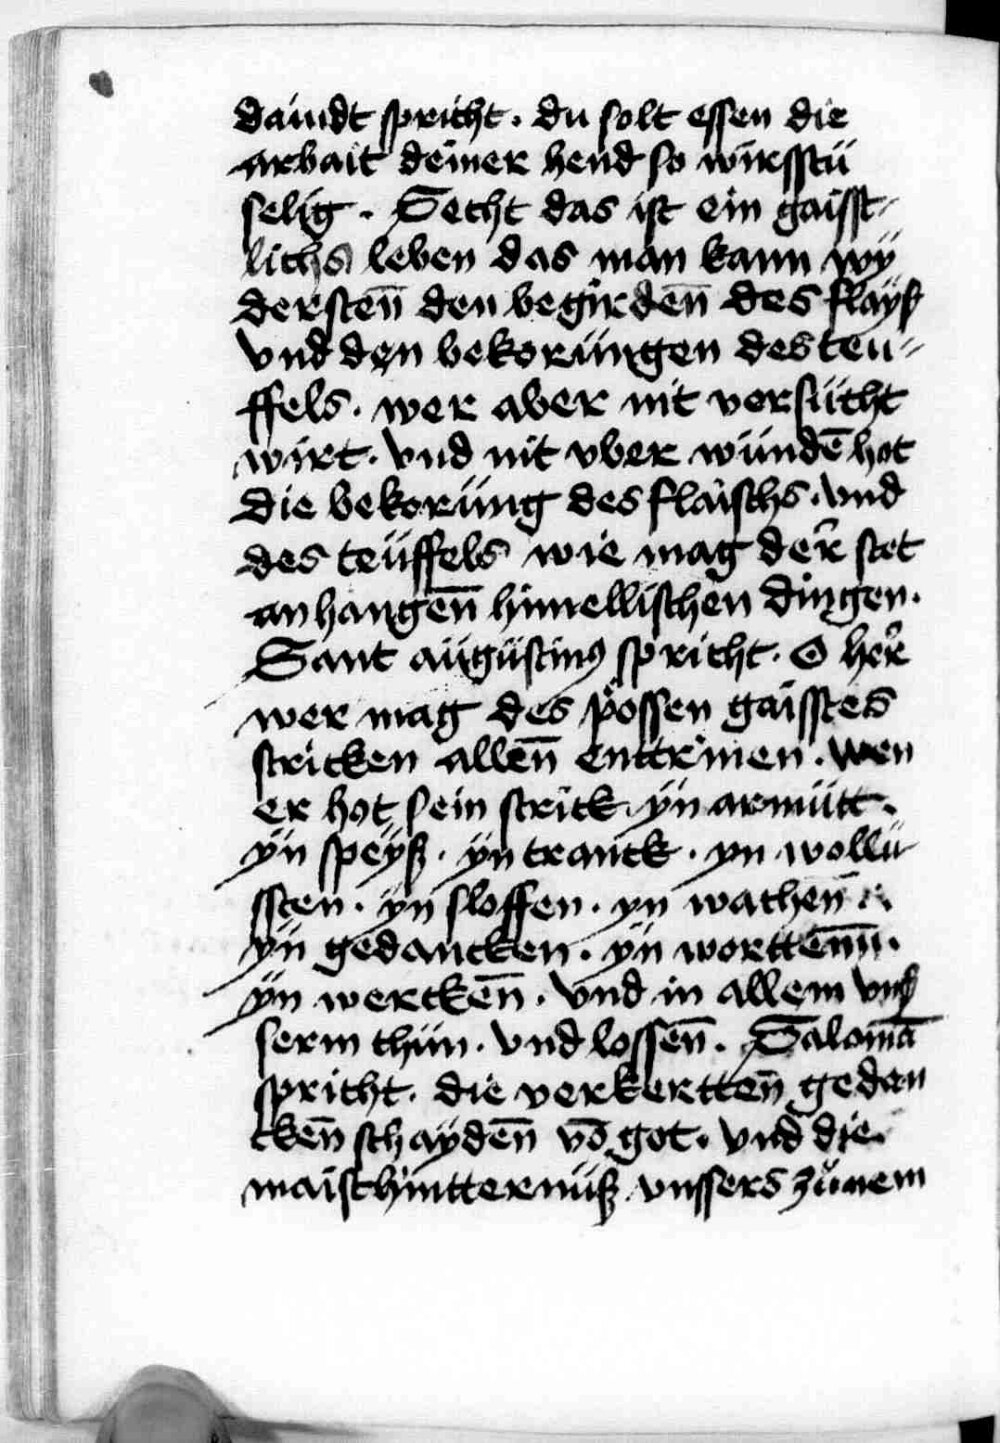 dauidt spricht. du solt essen die
arbait deiner hend so wirsstu
selig. Secht das ist ein gaisst-
lichs leben das man kann wÿ
dersten̄ den begirden̄ des flayß
vnd den bekorüngen des teu-
ffels. wer aber nit versücht
wirt. vnd nit vber wünndē hot
die bekorüng des flaischs. vnd
des teüffels wie mag der stet
anhangen̄ himellischen dingen.
Sant aügüstinꝰ spricht. O her
wer mag des pössen gaisstes
stricken allen̄ enttrinen. wen
er hot sein strick. ÿn armütt.
ÿn speÿß. ÿn tranck. yn wollü
ssten. ÿn sloffen. yn wachen̄
ÿn gedancken. ÿn wortten̄n.
ÿn wercken̄. vnd in allem vnß
serm thün. vnd lossen̄. Salomā
spricht. die verkertten̄ gedan
cken̄ schayden̄ vō got. vnd die
maisch mitternüß vnssers zůnem